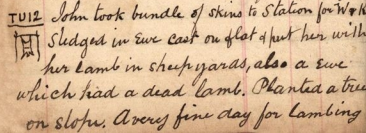 TU12 John took bundle of skins to Station for W & K
Sledged in Ewe cast on flat & put her with
her lamb in sheep yards, also a Ewe
which had a dead lamb. Planted a tree
on slope. A very fine day for lambing